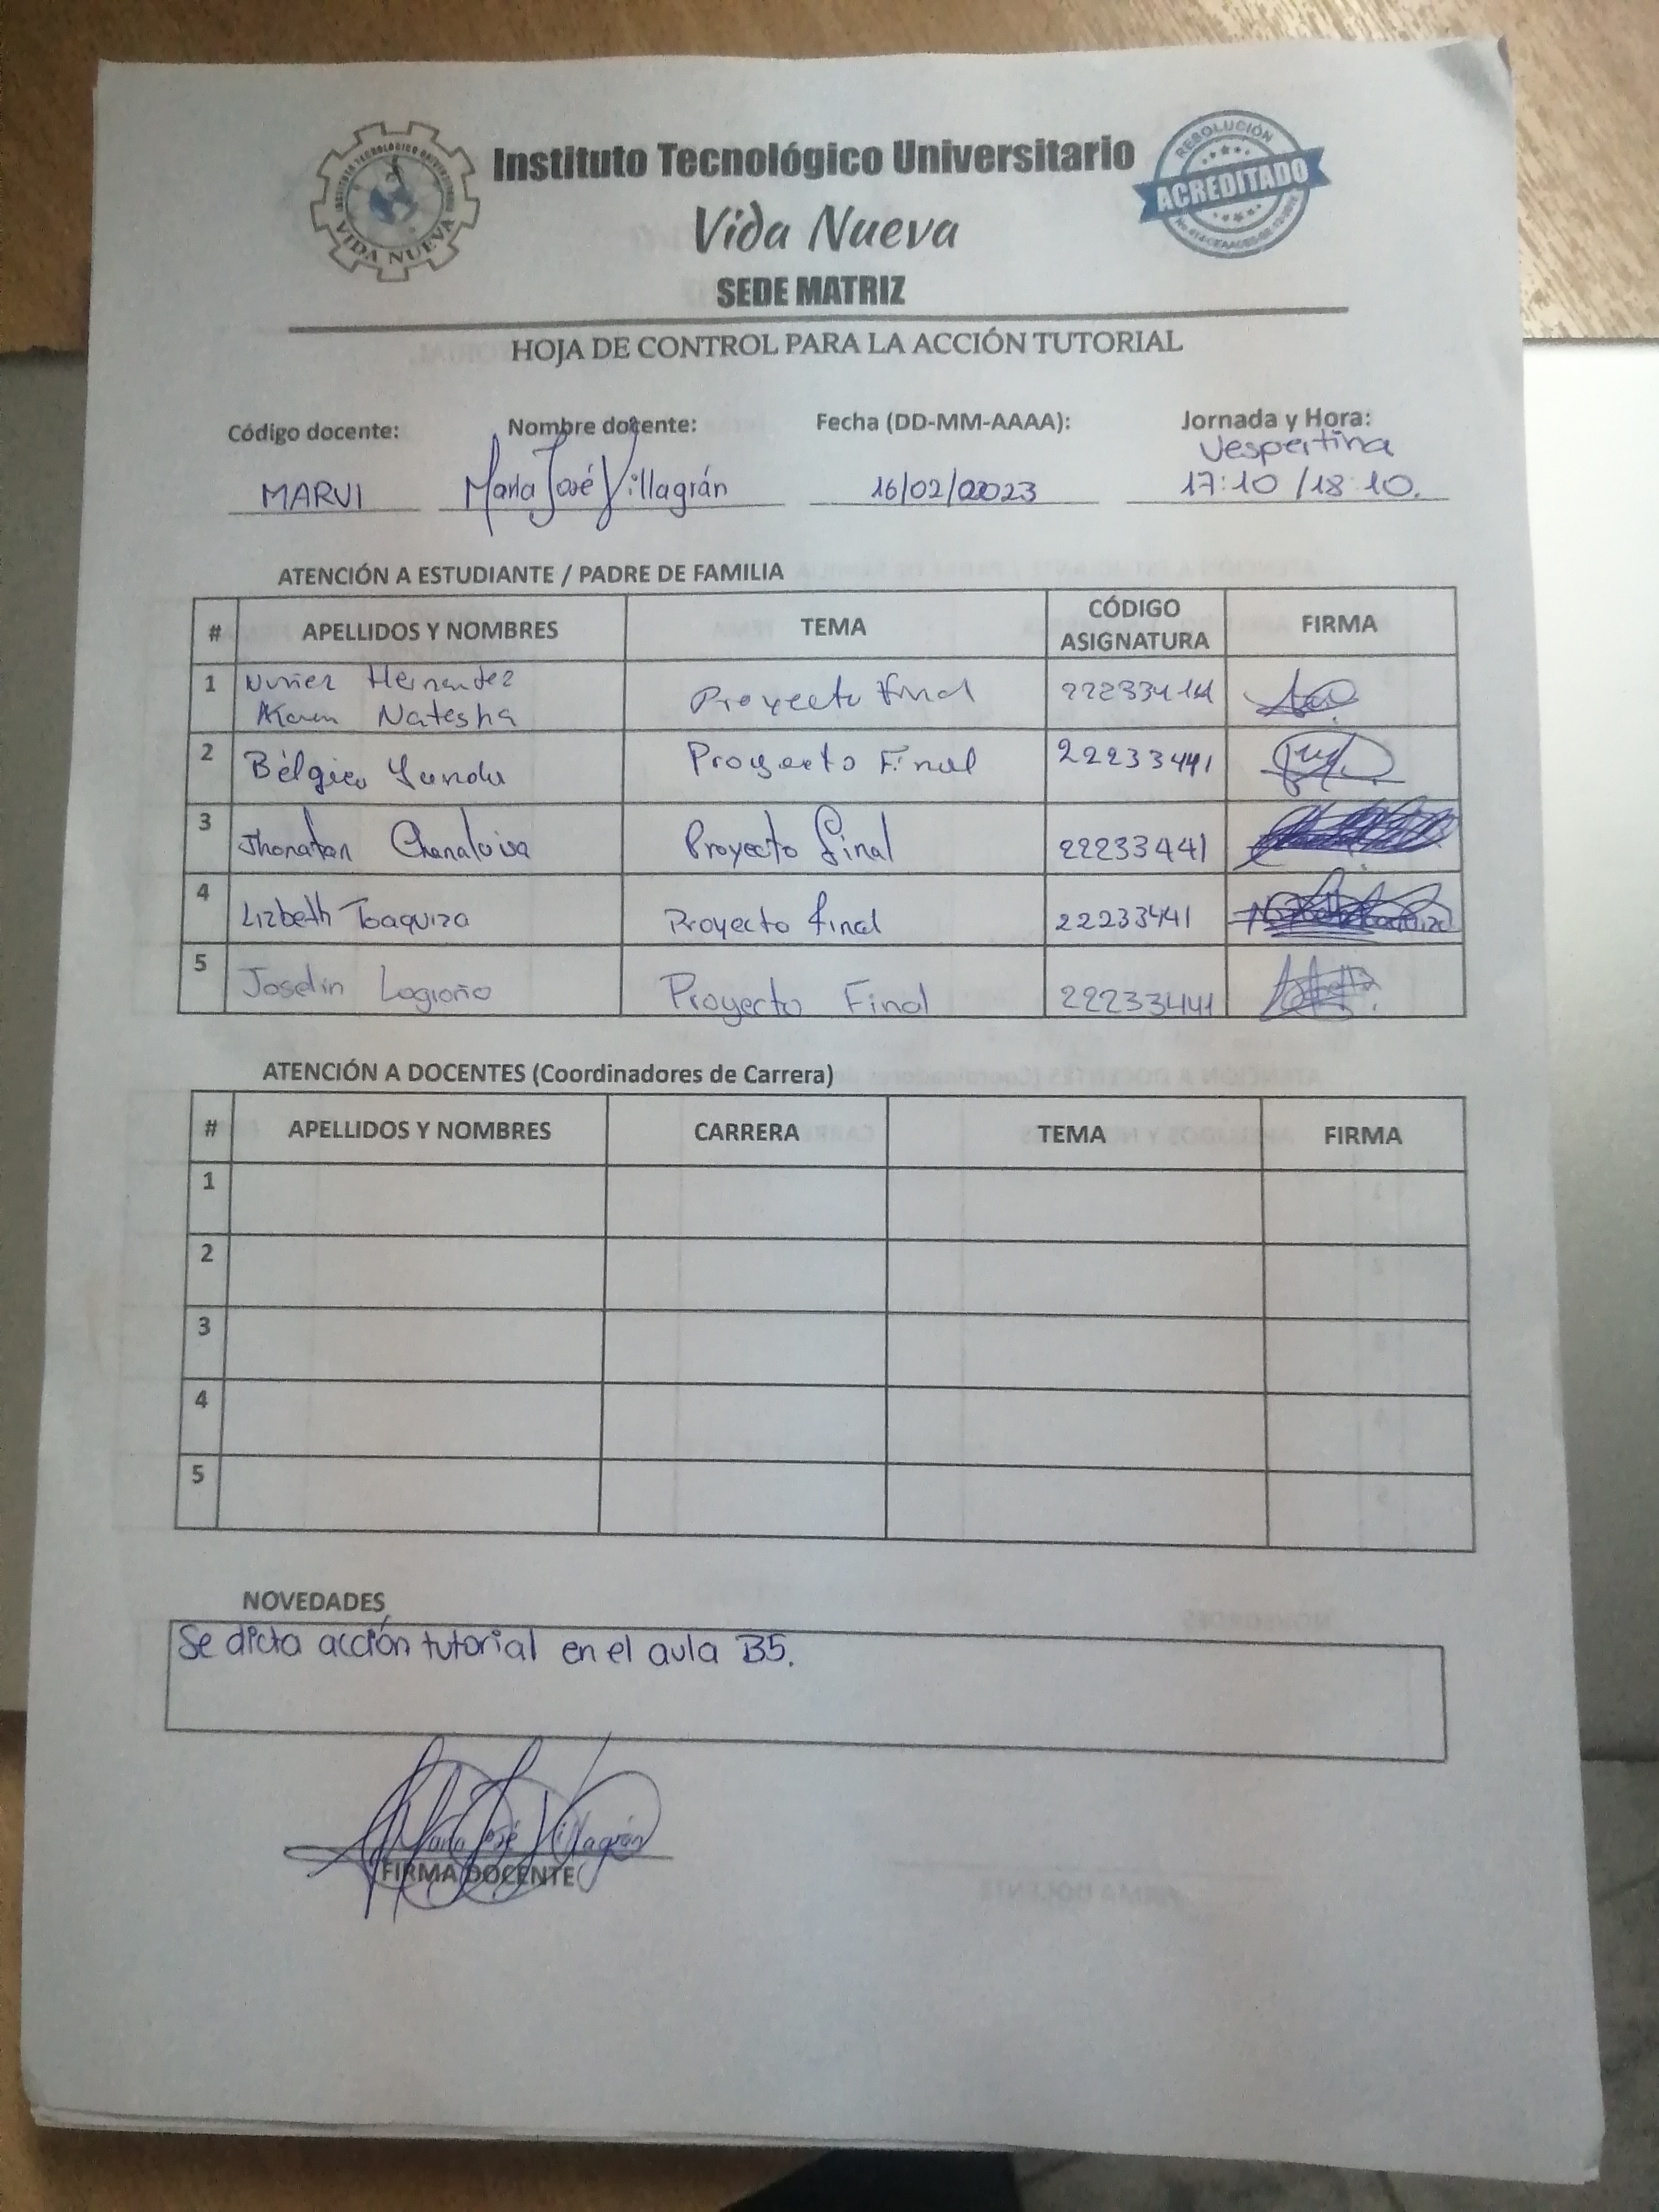 Instituto Tecnológico Universitario
Vida Nueva
SEDE MATRIZ
VIDA NUEVA
RESOLUCIÓN
ACREDITADO
HOJA DE CONTROL PARA LA ACCIÓN TUTORIAL
Código docente: Nombre docente: Fecha (DD-MM-AAAA): Jornada y Hora:
Vespertina
MARVI María José Villagrán 16/02/2023 17:10 /18:10.
ATENCIÓN A ESTUDIANTE / PADRE DE FAMILIA
# APELLIDOS Y NOMBRES TEMA CÓDIGO ASIGNATURA FIRMA
1 Nuñez Hernandez Proyecto final
Karen Natasha
2 Bélgica Proyecto Final 22233441
3 Jhonatan Chanaluisa Proyecto final 22233441
4 Lizbeth Toaquiza Proyecto final 22233441
5 Joselin Logroño Proyecto Final 22233441
ATENCIÓN A DOCENTES (Coordinadores de Carrera)
# APELLIDOS Y NOMBRES CARRERA TEMA FIRMA
1
2
3
4
5
NOVEDADES
Se dicta acción tutorial en el aula B5.
María José Villagrán
FIRMA DOCENTE